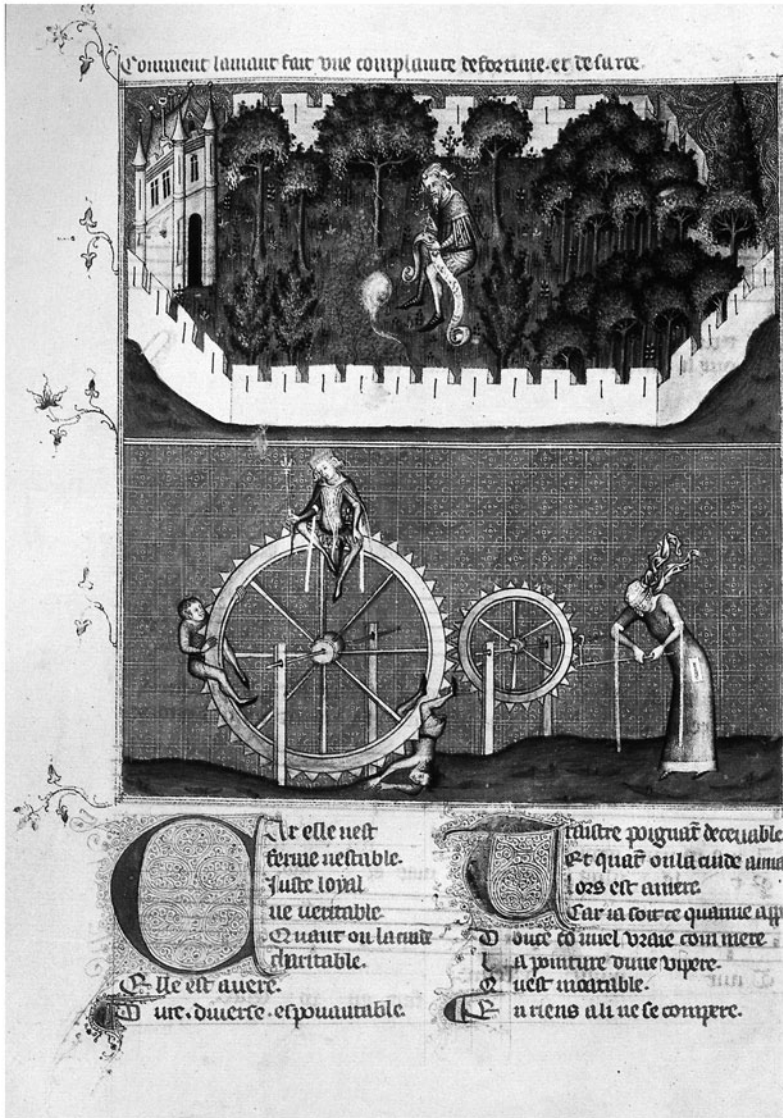 Comment lamant fait vne complainte de fortune. et de sa roe.
Car elle nest
ferme nestable.
Iuste loyal
ne veritable.
Quant on la cuide
charitable.
Elle est auere.
Dure. diuerse. espouantable.
Traistre poignāt deceuable.
Et quāt on la cuide
Lors est amere.
Car ia soit ce quamie app
Douce cō miel vraie com mere
La pointure dune vipere.
En riens a li ne se compere.